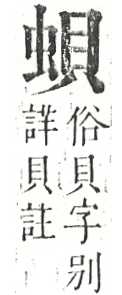 䟺
俗貝字别
詳貝註